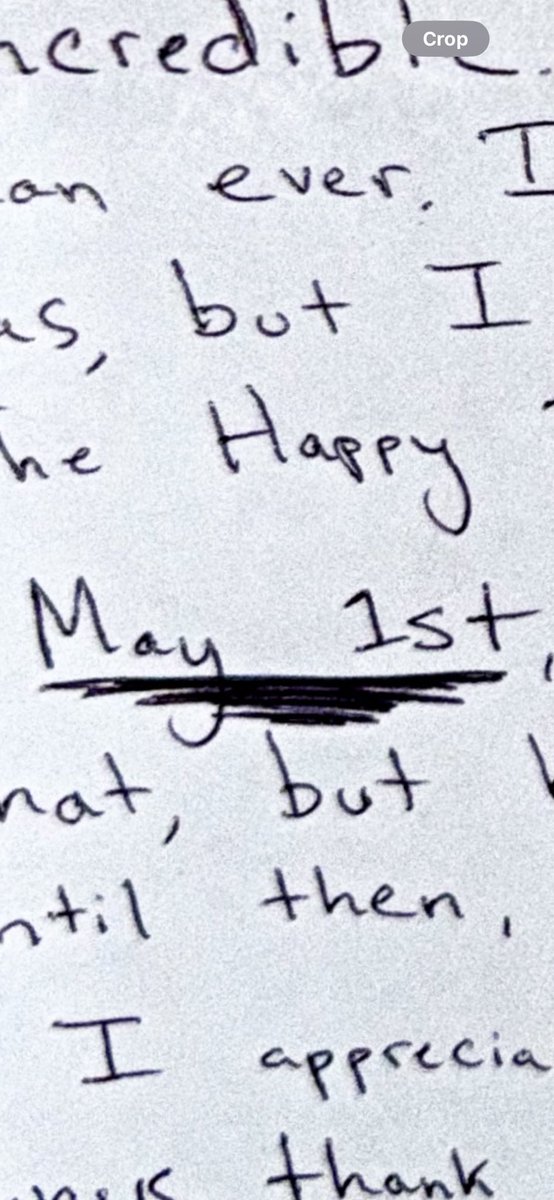 Crop
ncredible.
an ever. I
as, but I
he Happy
May 1st,
hat, but
ntil then,
I apprecia
thank